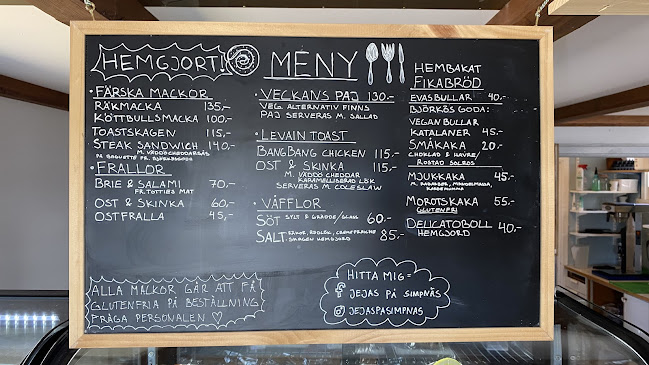 HEMGJORT!
MENY
• FÄRSKA MACKOR
RÄKMACKA 135,-
KÖTTBULLSMACKA 100,-
TOASTSKAGEN 115,-
STEAK SANDWICH 140,-
M. VÄDDÖCHEDDARSÅS
PÅ BAGUETTE FR. BJÖRKÖGODA
• FRALLOR
BRIE & SALAMI 70,-
FR. TOTTIES MAT
OST & SKINKA 60,-
OSTFRALLA 45,-
ALLA MACKOR GÅR ATT FÅ
GLUTENFRIA PÅ BESTÄLLNING
FRÅGA PERSONALEN ♡
• VECKANS PAJ 130,-
VEG. ALTERNATIV FINNS
PAJ SERVERAS M. SALLAD
• LEVAIN TOAST
BANGBANG CHICKEN 115,-
OST & SKINKA 115,-
M. VÄDDÖ CHEDDAR
KARAMELLISERAD LÖK
SERVERAS M. COLESLAW
• VÅFFLOR
SÖT SYLT & GRÄDDE/GLASS 60,-
SALT RÄKOR, RÖDLÖK, CREME FRAICHE 85,-
SKAGEN HEMGJORD
HITTA MIG =
JEJAS PÅ SIMPNÄS
JEJASPASIMPNAS
HEMBAKAT
FIKABRÖD
EVAS BULLAR 40,-
BJÖRKÖS GODA:
VEGAN BULLAR
KATALANER 45,-
SMÅKAKA 20,-
CHOKLAD & HAVRE/
ROSTAD SOLROS
MJUKKAKA 45,-
MOROTSKAKA 55,-
GLUTENFRI
DELICATOBOLL 40,-
HEMGJORD